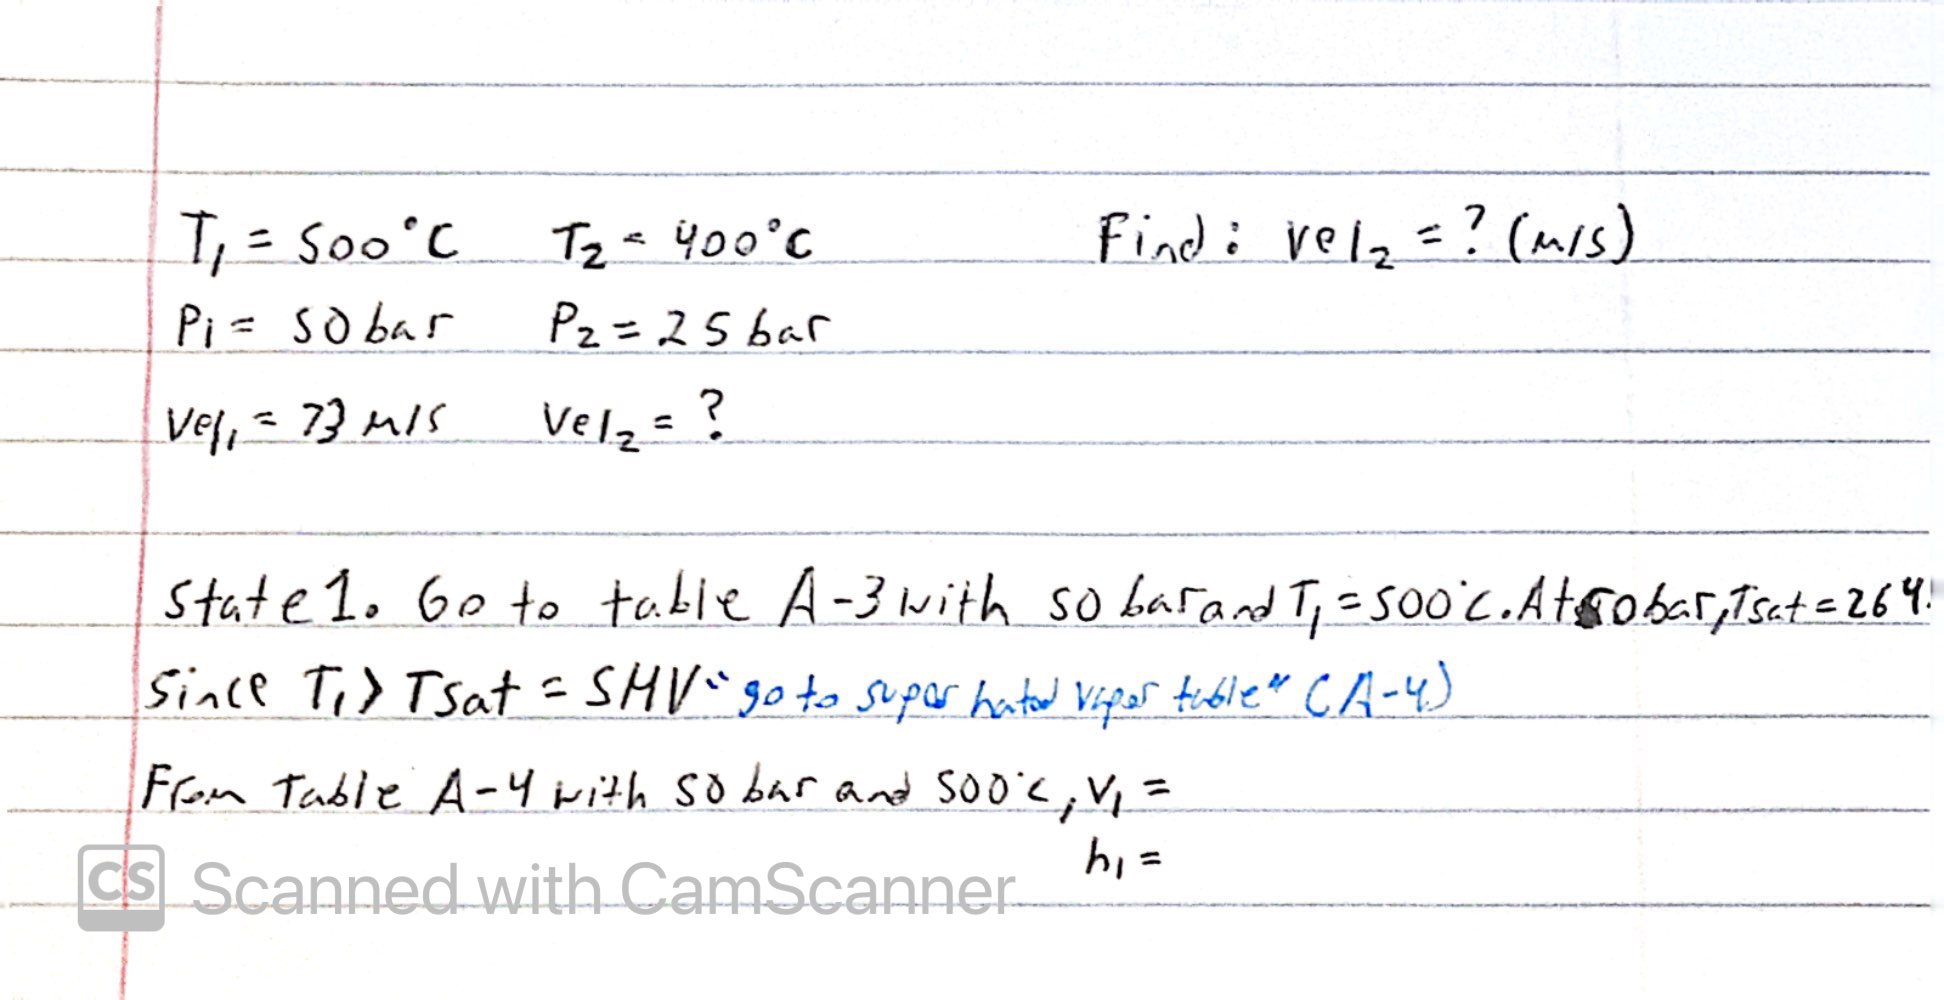 T₁ = 500°C T₂ = 400°C Find: vel₂ = ? (m/s)
P₁ = 50 bar P₂ = 25 bar
Vel₁ = 73 m/s Vel₂ = ?
State 1. Go to table A-3 with 50 bar and T₁ = 500°C. At 50 bar, Tsat = 264.
Since T₁ > Tsat = SHV "go to super hated vaper table" (A-4)
From Table A-4 with 50 bar and 500°C, V₁ =
h₁ =
CS Scanned with CamScanner